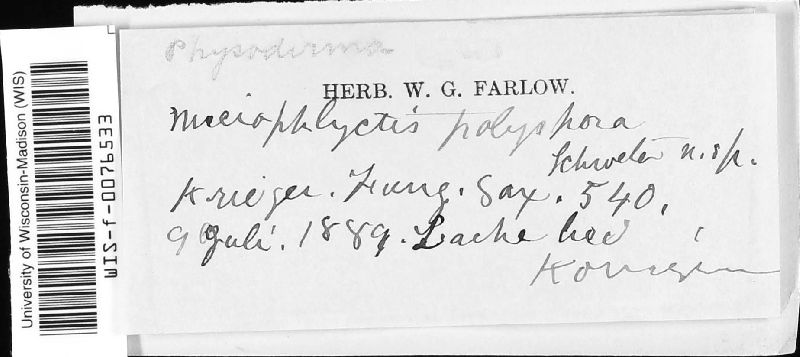 Physoderma
HERB. W. G. FARLOW.
Meiophlyctis polyspora
Schroeter n. sp.
Krieger. Fung. Sax. 540,
9 Juli. 1889. Lache bei
Königstein
University of Wisconsin-Madison (WIS)
WIS-f-0076533